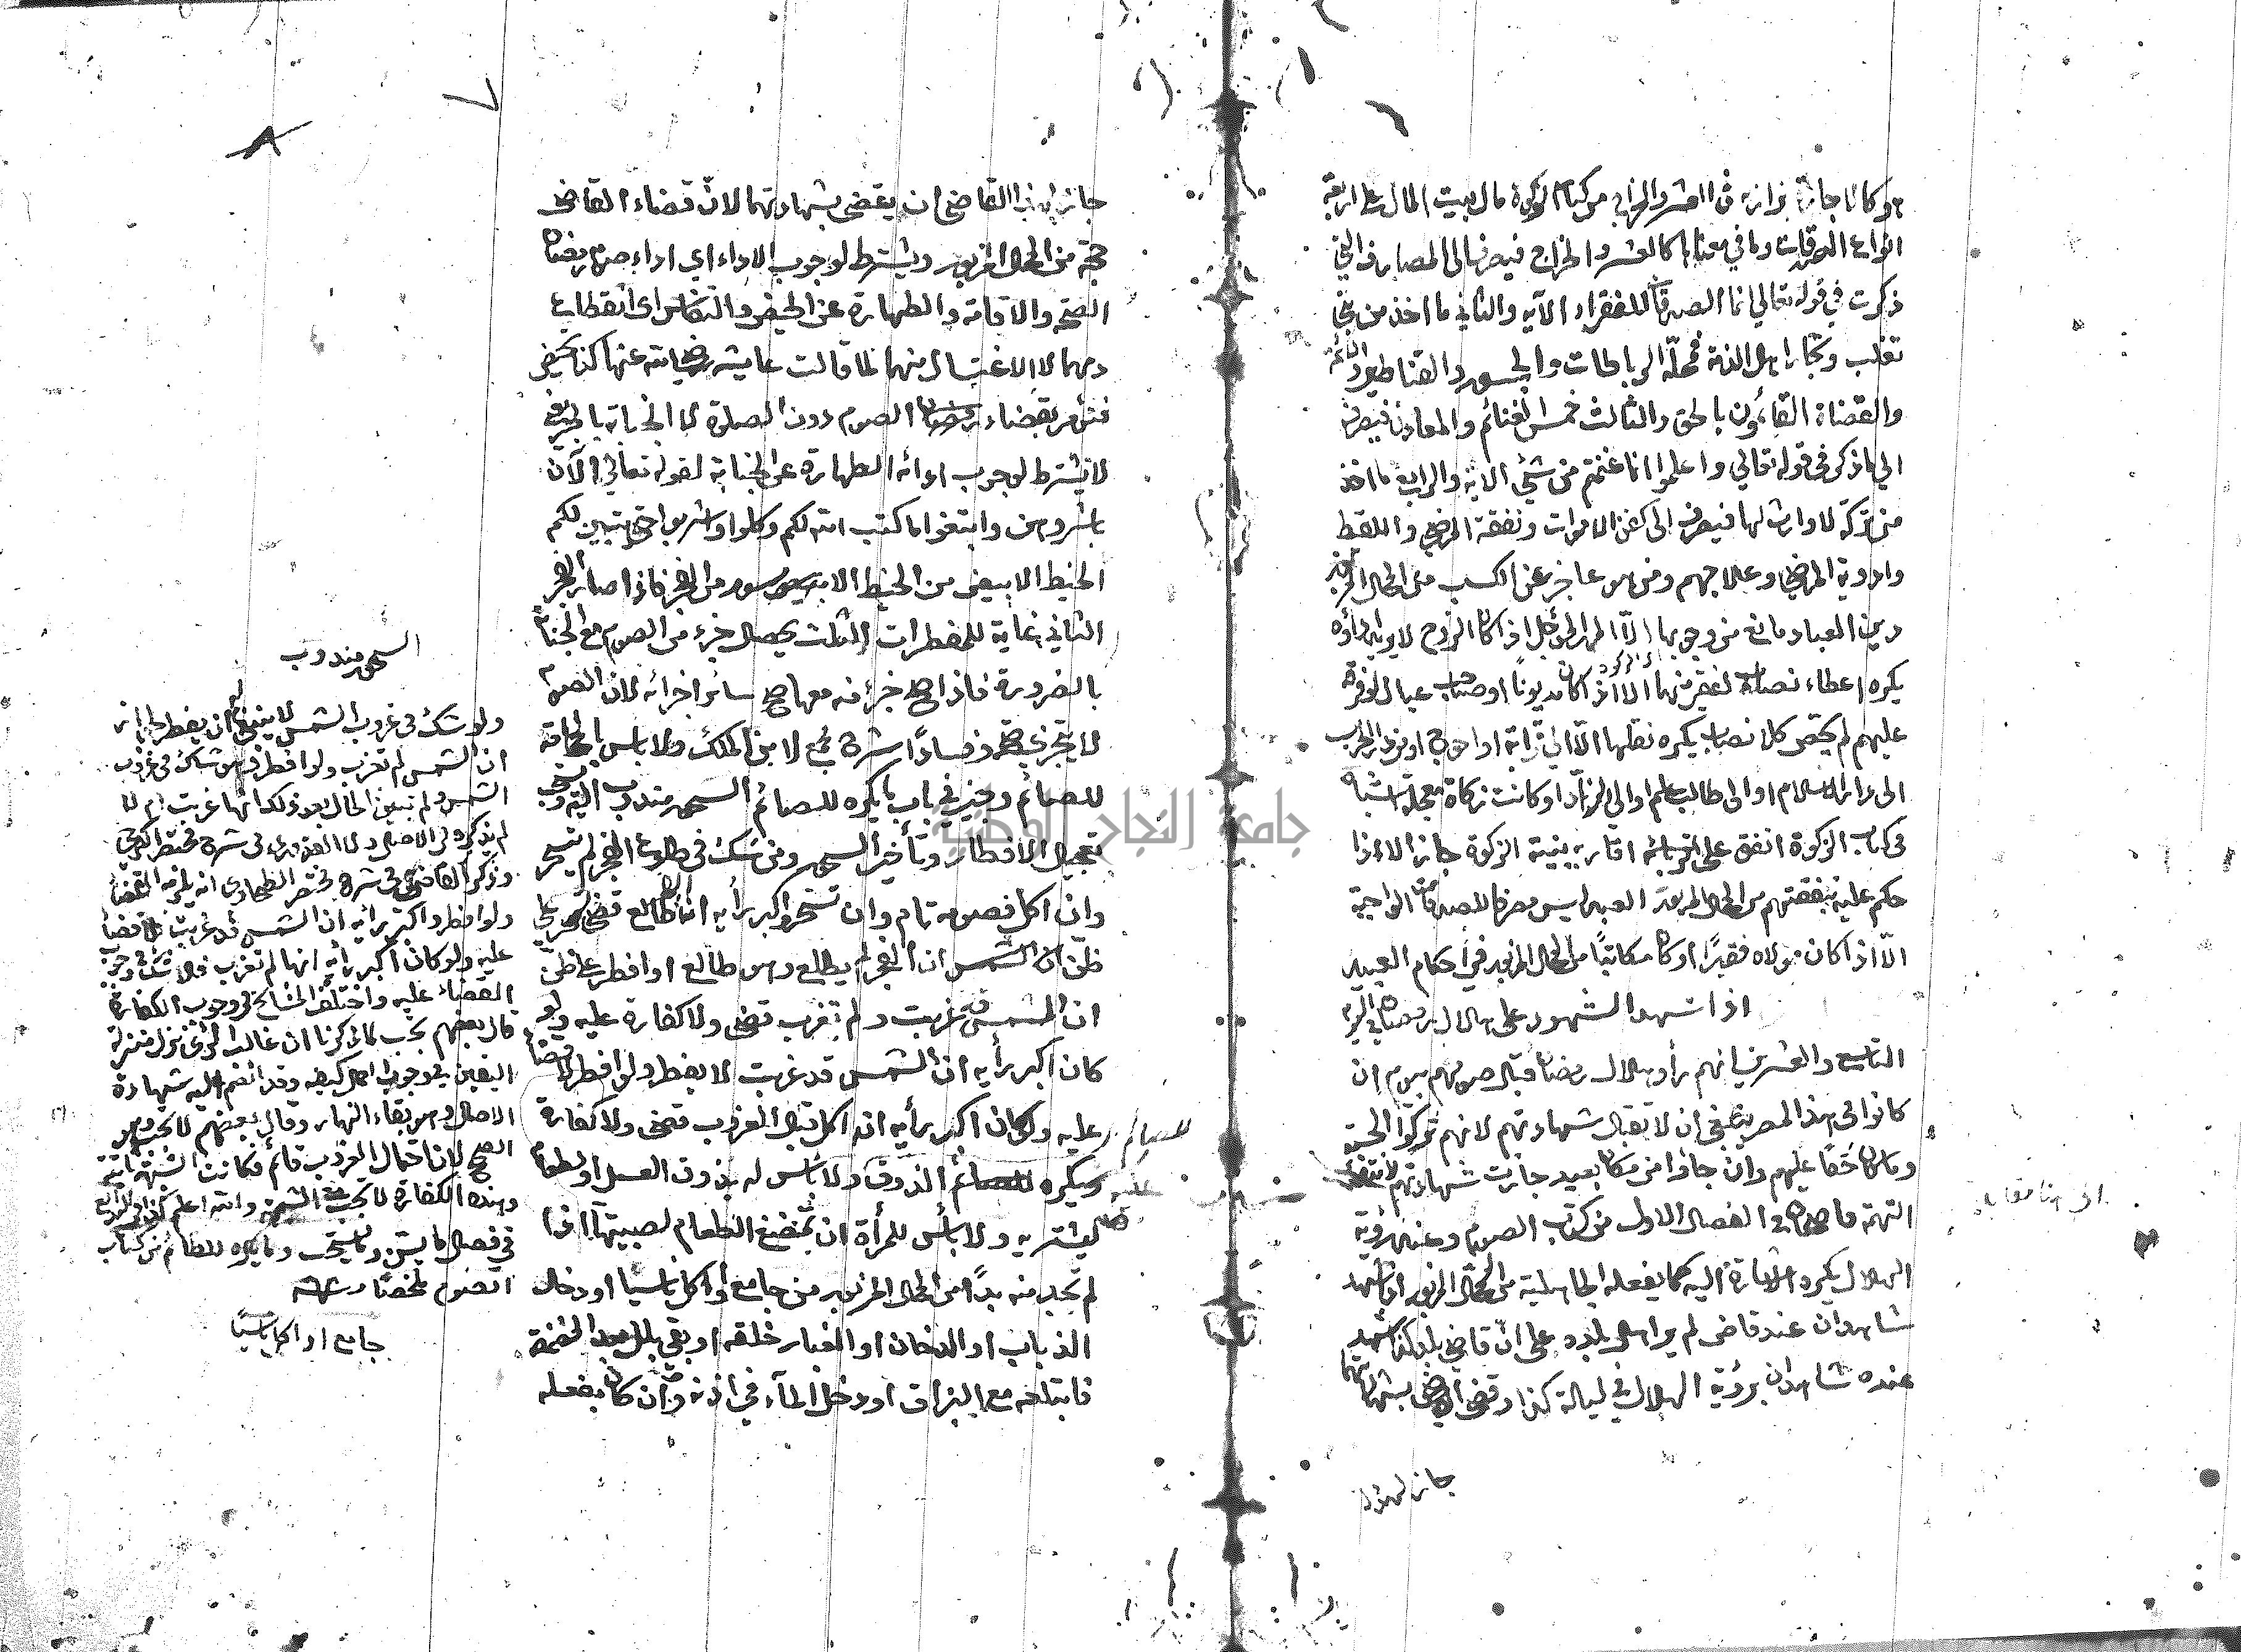 وكانا جائزا بزازيه في العشر والخراج من كتاب الزكوة مال بيت المال على اربعة
انواع الصدقات وما في معناها كالعشر والخراج فيصرف الى المصارف التي
ذكرت في قوله تعالى انما الصدقات للفقراء الآيه والثاني ما اخذ من بني
تغلب وتجار اهل الذمة فمحله الرباطات والجسور والقناطير
والقضاة القائمون بالحق والثالث خمس الغنائم والمعادن فيصرف
الى ما ذكر في قوله تعالى واعلموا انما غنمتم من شيء الاية والرابع ما اخذ
من تركة لا وارث لها فيصرف الى كفن الاموات ونفقة المرضى واللقط
وادوية المرضى وعلاجهم ومن هو عاجز عن الكسب من المحل المزبور
دين العباد مانع من وجوبها الا المهر المؤجل اذا كان الزوج لا يريد اداؤه
يكره اعطاء نصاب لفقير منها الا اذا كان مديونا او صاحب عيال لو فرقه
عليهم لم يخص كلا نصاب يكره نقلها الا الى قرابة او احوج او من دار الحرب
الى دار الاسلام او الى طالب علم او الى الزهاد او كانت زكاة معجلة اشباه
في كتاب الزكوة انفق على اقاربه بنية الزكوة جاز الا اذا
حكم عليه بنفقتهم من المحل المزبور العبد ليس مصرفا للصدقات الواجبة
الا اذا كان مولاه فقيرا او كان مكاتبا من المحل المزبور في احكام العبيد
اذا شهد الشهود على هلال رمضان في اليوم
التاسع والعشرين انهم رأوا هلال رمضان قبل صومهم بيوم ان
كانوا في هذا المصر ينبغي ان لا تقبل شهادتهم لانهم تركوا الحسبة
وما كان حقا عليهم وان جاؤا من مكان بعيد جازت شهادتهم لانتفاء
التهمة قاضيخان في الفصل الاول من كتاب الصوم وعند رؤية
الهلال يكره الاشارة اليه كما يفعله الجاهلية من المحل المزبور اذا شهد
شاهدان عند قاضى لم ير اهل بلده على ان قاضي بلد كذا شهد
عنده شاهدان برؤية الهلال في ليلة كذا وقضى القاضي بشهادتهما
جاز لهذا
الى هنا مقابلة
جاز لهذا القاضي ان يقضي بشهادتهما لان قضاء القاضي
حجة من المحل المزبور ويشترط لوجوب الاداء اي اداء صوم رمضان
الصحة والاقامة والطهارة عن الحيض والنفاس اى انقطاع
دمهما لا الاغتسال منهما لما قالت عايشه رضي الله عنها كنا نحيض
فنؤمر بقضاء الصوم دون الصلوة
لا يشترط لوجوب ادائه الطهارة عن الجنابة لقوله تعالى فالآن
باشروهن وابتغوا ما كتب الله لكم وكلوا واشربوا حتى يتبين لكم
الخيط الابيض من الخيط الاسود من الفجر فاذا صار الفجر
الثاني غاية للمفطرات الثلث يحصل جزء من الصوم مع الجنابة
بالضرورة فاذا صح جزء منه معها صح سائر اجزائه لان الصوم
لا يتجزى صحة وفسادا شرح مجمع لابن الملك ولا بأس بالحجامة
للصائم وجيز في باب ما يكره للصائم السحور مندوب اليه ويستحب
تعجيل الافطار وتأخير السحور ومن شك في طلوع الفجر لم يتسحر
وان اكل فصومه تام وان تسحر واكبر رأيه ان الفجر طالع قضى
ظن ان الفجر لم يطلع وهو طالع او افطر على ظن
ان الشمس قد غربت ولم تغرب قضى ولا كفارة عليه ولو
كان اكبر رأيه ان الشمس قد غربت لا يفطر ولو افطر لا قضاء
عليه ولو كان اكبر رأيه انه اكل قبل الغروب قضى ولا كفارة
ويكره للصائم الذوق ولا بأس له بذوق العسل او الطعام
ليشتريه ولا بأس للمرأة ان تمضغ الطعام لصبيها اذا
لم تجد منه بدا من المحل المزبور من جامع او اكل ناسيا او دخل
الذباب او الدخان او الغبار حلقه او بقي بلل بعد المضمضة
فابتلعه مع البزاق او دخل الماء في اذنه وان كان بفعله
للصائم
السحور مندوب
ولو شك في غروب الشمس لا ينبغي له ان يفطر لجواز
ان الشمس لم تغرب ولو افطر وهو شاك في غروب
الشمس ولم يتبين الحال بعد ذلك انها غربت ام لا
لم يذكره في الاصل ولا القدوري في شرح مختصر الكرخي
وذكر القاضي في شرح مختصر الطحاوى انه يلزمه القضاء
ولو افطر واكبر رأيه ان الشمس قد غربت فلا قضاء
عليه ولو كان اكبر رأيه انها لم تغرب فلا شك في وجوب
القضاء عليه واختلف المشايخ في وجوب الكفارة
قال بعضهم يجب لما ذكرنا ان غالب الرأى نزل منزلة
اليقين في وجوب العمل كيف وقد انضم اليه شهادة
الاصل وهو بقاء النهار وقال بعضهم لا يجب وهو
الصحيح لان احتمال الغروب قائم فكانت الشبهة ثابتة
وهذه الكفارة لا تجب مع الشبهة والله اعلم كذا في البدائع
في فصل ما يسن وما يستحب وما يكره للصائم من كتاب
الصوم ملخصا
جامع او اكل ناسيا
جامعة النجاح الوطنية